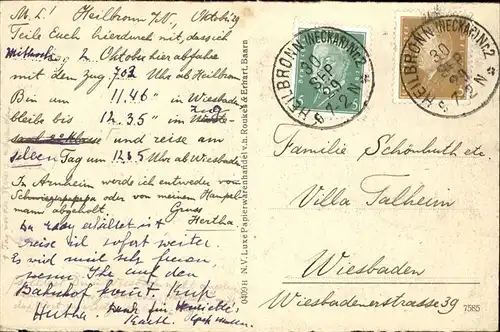 M. L! Heilbronn
Teile Euch hierdurch mit, dass ich
Mittwoch 2. Oktober hier abfahre
mit dem Zug 7.03 Uhr ab Heilbronn
Bin um 11.46 " in Wiesbaden
bleib bis 12.35 " in
und reise am
selben Tag um 1235 Uhr ab Wiesbaden
In Arnheim werde ich entweder von
oder von meinem
mann abgeholt. Gruss
Hertha.
Da erhältet ist
reise ich sofort weiter.
Es wird mich sehr freuen,
wenn Ihr auf den
Bahnhof kommt. Kuss
Hertha.
0409 H N.V. Luxe Papierwarenhandel v.h. Roukes & Erhart, Baarn
HEILBRONN (NECKAR) NR2
30 SEP 29
6-7 N
5
HEILBRONN (NECKAR) NR2
30 SEP 29
6-7 N
Familie Schönhuth etc
Villa Talheim
Wiesbaden
Wiesbadenerstrasse 39
7585